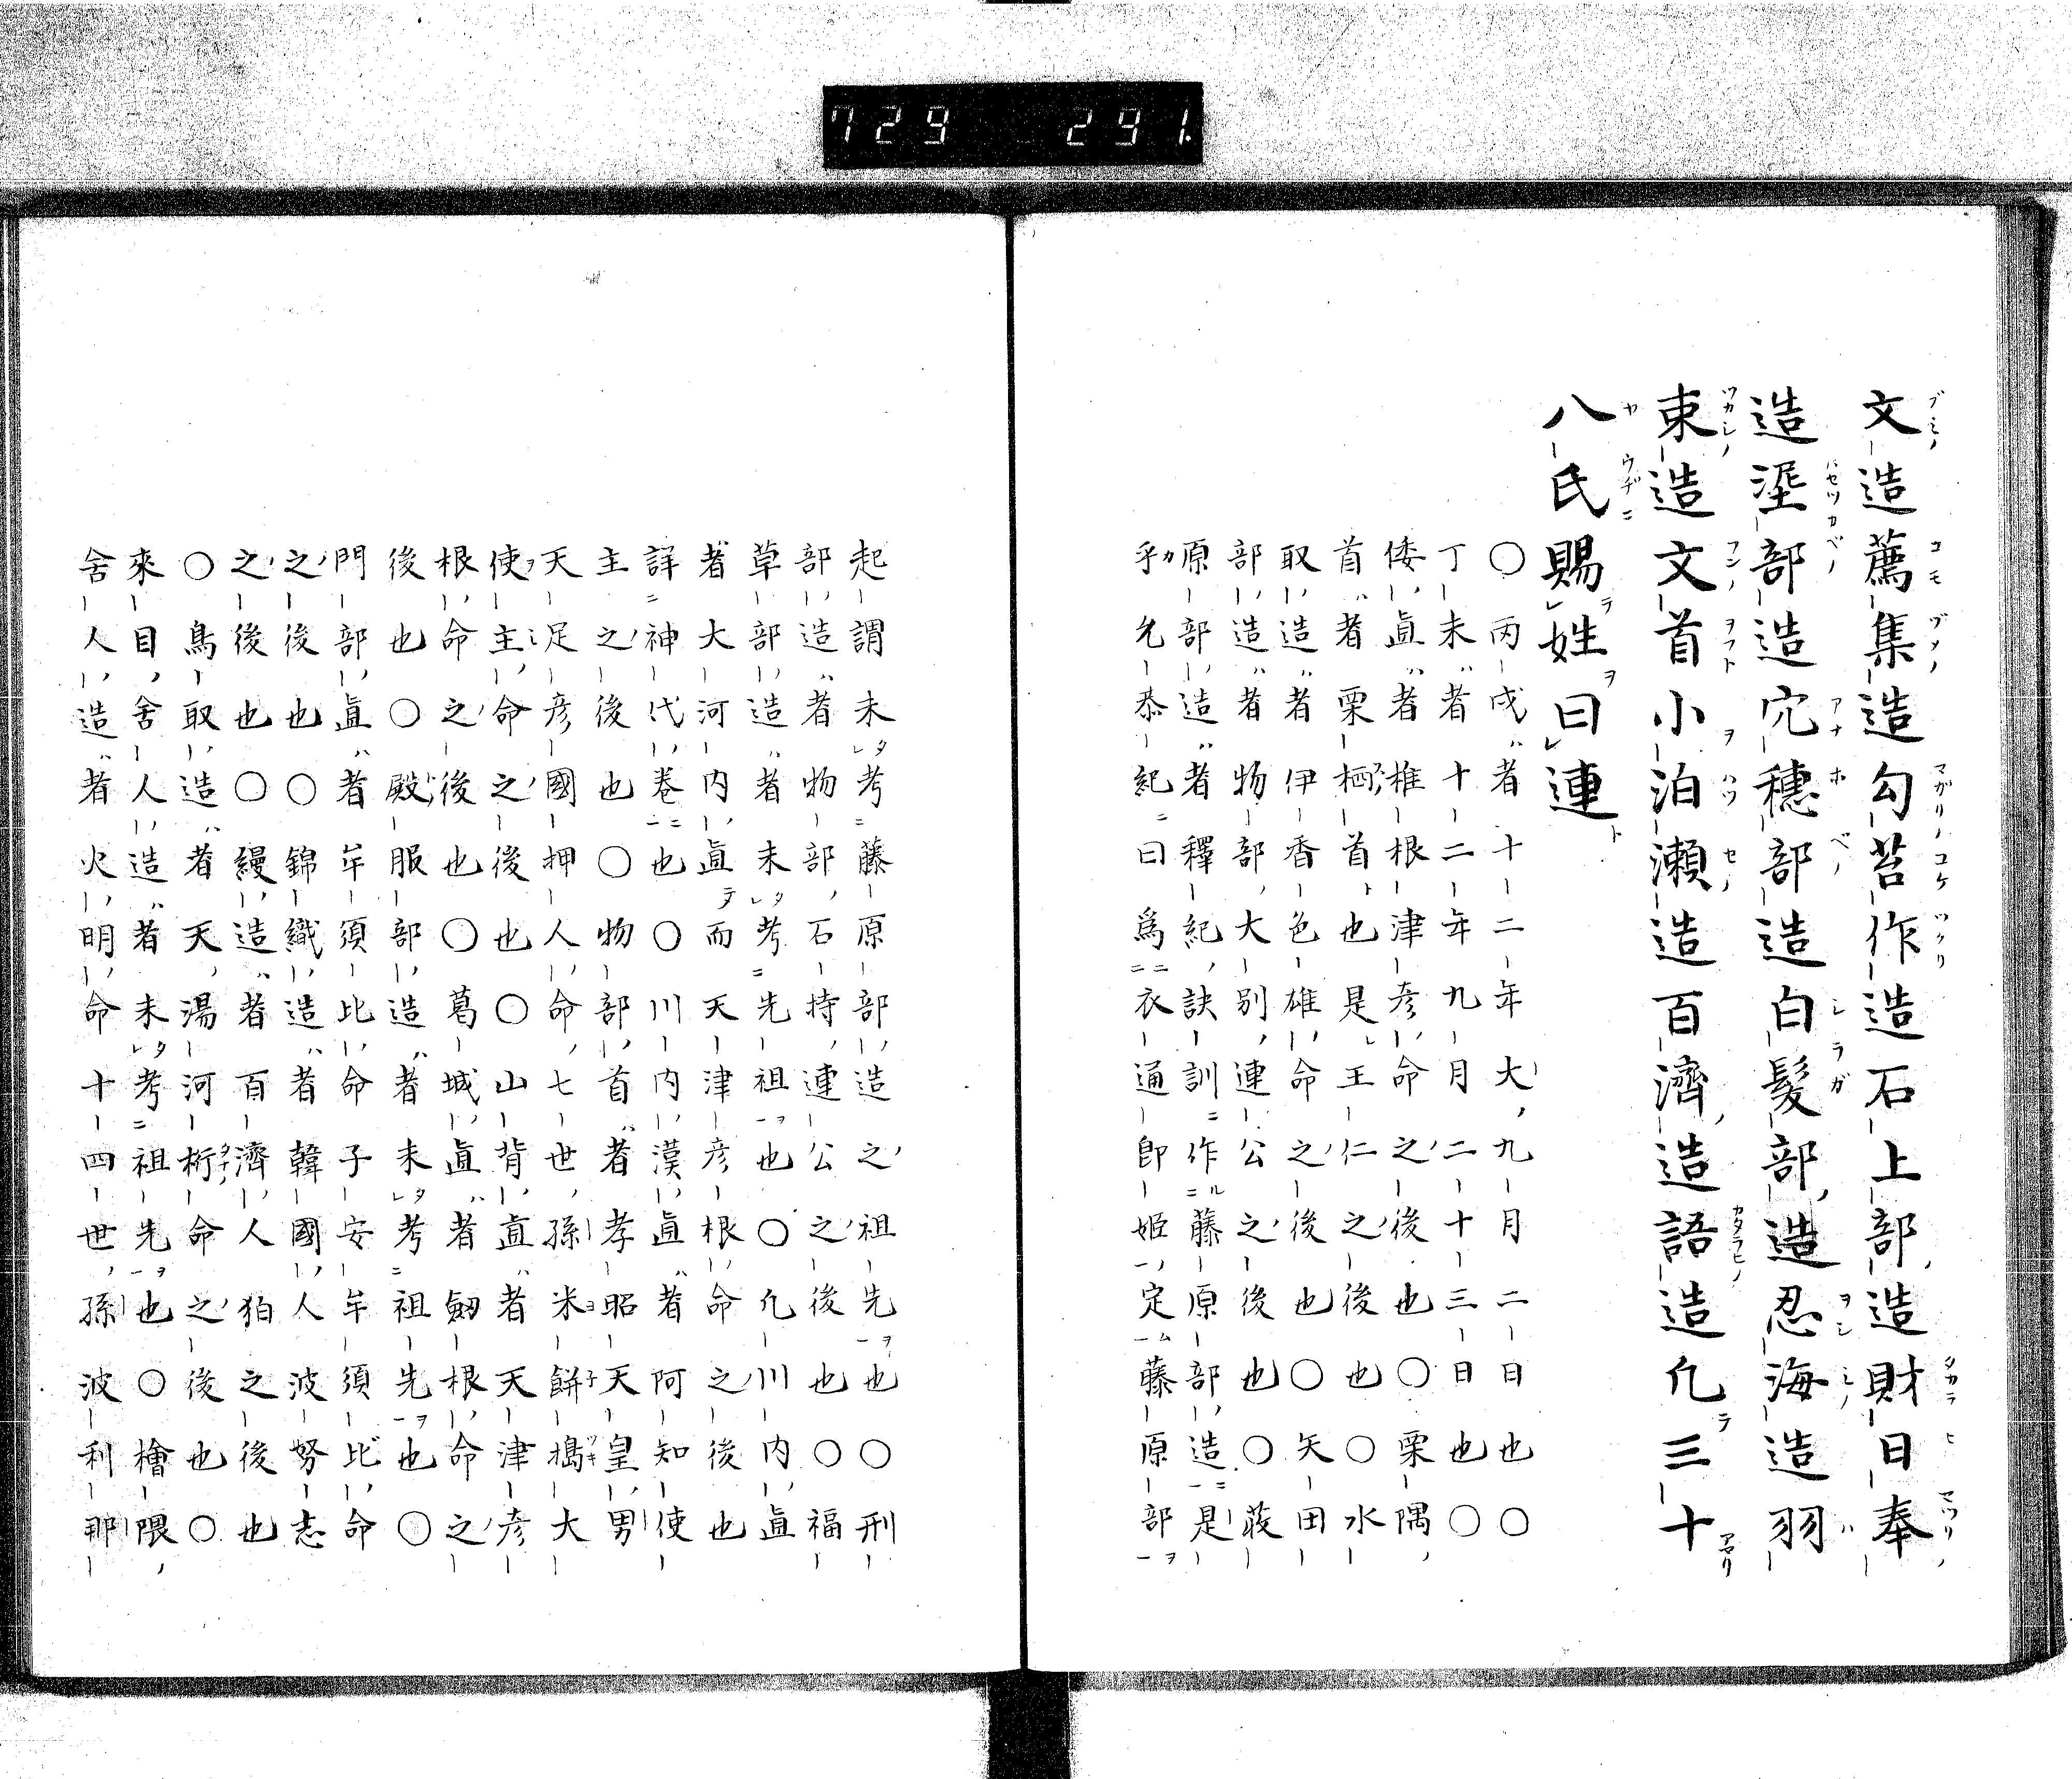 729 291.
文造薦集造勾筥作造石上部造財日奉
造埿部造穴穗部造白髮部造忍海造羽
束造文首小泊瀨造百濟造語造凡三十
八氏賜姓曰連
〇丙戌者十二年大九月二日也〇
丁未者十二年九月二十三日也〇
倭直者椎根津彦命之後也〇栗隅
首者栗栖首也是王仁之後也〇水
取造者伊香色雄命之後也〇矢田
部造者物部大別連公之後也〇藤
原部造者釋紀訣訓作藤原部造是
乎允恭紀曰爲衣通郎姬定藤原部
起謂未考藤原部造之祖先也〇刑
部造者物部石持連公之後也〇福
草部造者未考先祖也〇凡川內直
者大河內直而天津彦根命之後也
詳神代卷也〇川內漢直者阿知使
主之後也〇物部首者孝昭天皇男
天足彦國押人命七世孫米餅搗大
使主命之後也〇山背直者天津彦
根命之後也〇葛城直者劒根命之
後也〇殿服部造者未考祖先也〇
門部直者牟須比命子安牟須比命
之後也〇錦織造者韓國人波努志
之後也〇縵造者百濟人狛之後也
〇鳥取造者天湯河桁命之後也〇
來目舍人造者未考祖先也〇檜隈
舍人造者火明命十四世孫波利那